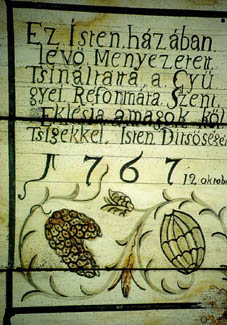 Ez Isten házában
lévö Menyezetett
Tsináltatta, a Gyü
gyei Reformata Szent.
Eklesia amagok köl
tsigekkel. Isten Ditsöségér
1767
12 oktobr